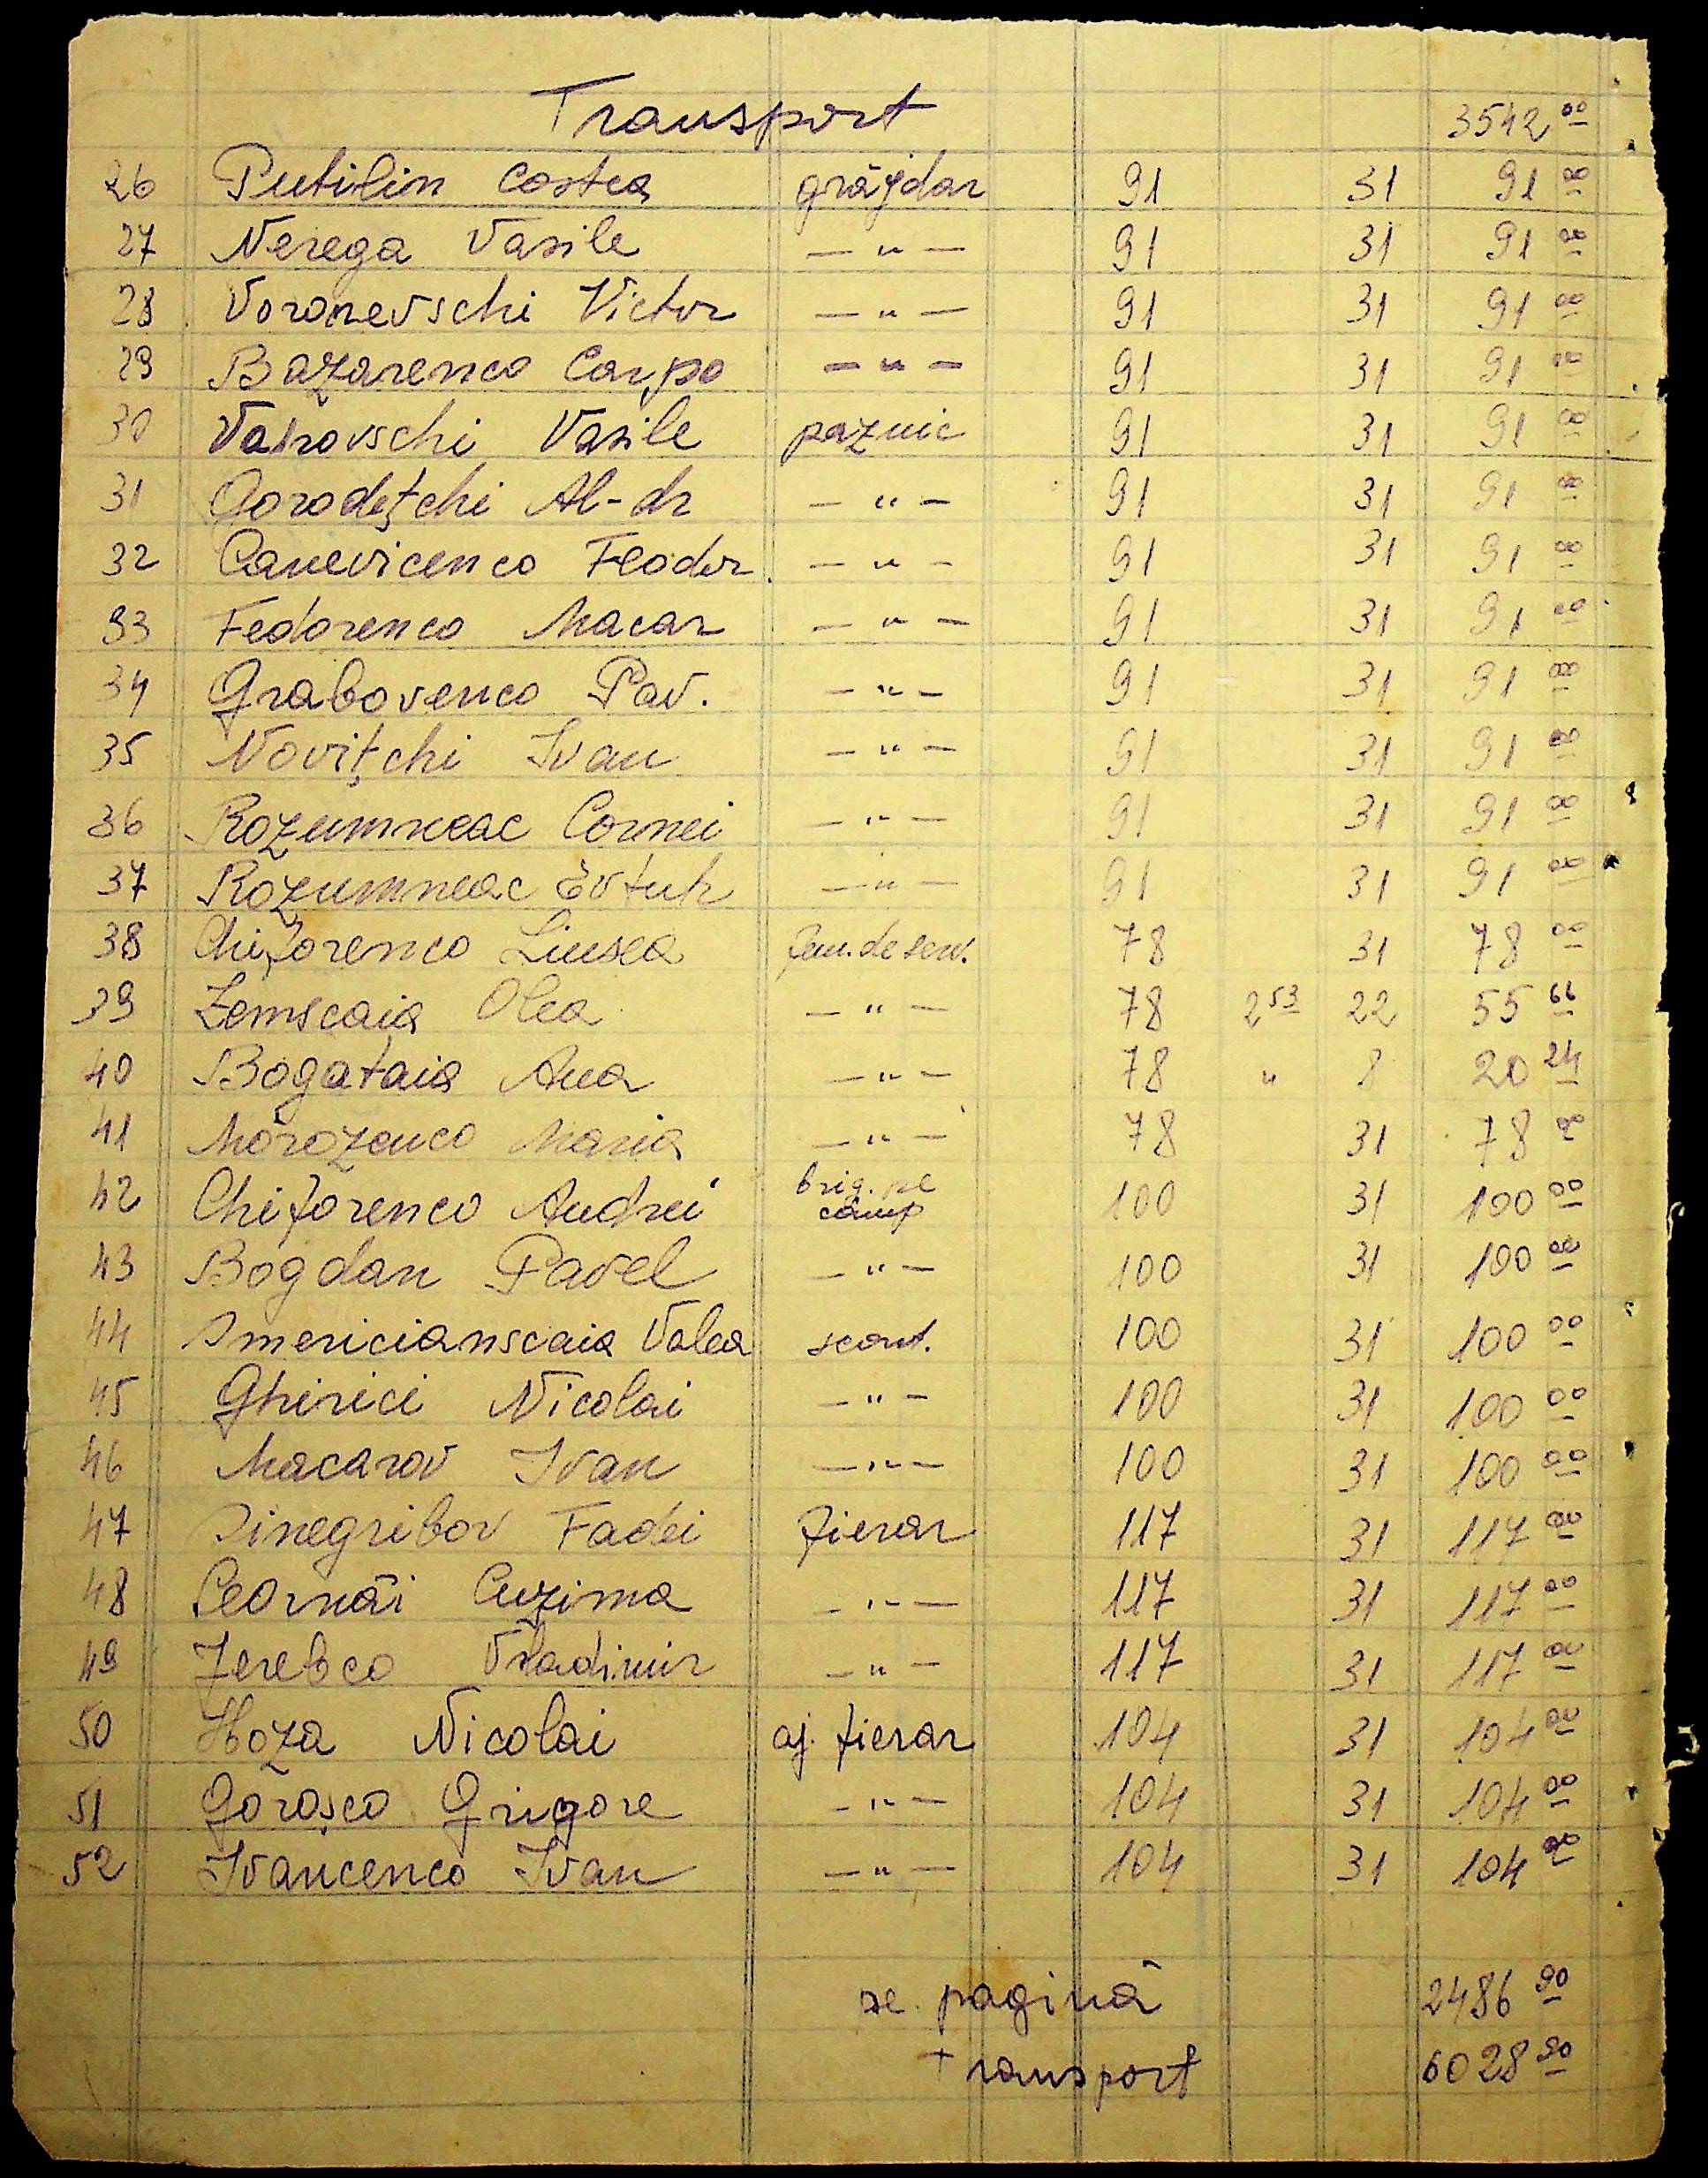 Transport 3542 00
26 Putilin Costea grăjdar 91 31 91 00
27 Nerega Vasile — " — 91 31 91 00
28 Voronevschi Victor — " — 91 31 91 00
29 Bazarenco Carpo — " — 91 31 91 00
30 Vasile paznic 91 31 91 00
31 Gorodețchi Al-dr — " — 91 31 91 00
32 Canevicenco Feodor — " — 91 31 91 00
33 Fedorenco Macar — " — 91 31 91 00
34 Grabovenco Pav. — " — 91 31 91 00
35 Novițchi Ivan — " — 91 31 91 00
36 Rozumneac Cornei — " — 91 31 91 00
37 Rozumneac Evtuh — " — 91 31 91 00
38 Chiforenco Liusea fem. de serv. 78 31 78 00
39 Zemscaia Olea — " — 78 2 53 22 55 66
40 Bogataia Ana — " — 78 " 8 20 24
41 Morozenco Maria — " — 78 31 78 00
42 Chiforenco Andrei brig. pe câmp 100 31 100 00
43 Bogdan Pavel — " — 100 31 100 00
44 Smericianscaia Valea scont. 100 31 100 00
45 Ghirici Nicolai — " — 100 31 100 00
46 Macarov Ivan — " — 100 31 100 00
47 Sinegribov Fadei fierar 117 31 117 00
48 Ceornâi Cuzima — " — 117 31 117 00
49 Jerebco Vladimir — " — 117 31 117 00
50 Nicolai aj. fierar 104 31 104 00
51 Goroșco Grigore — " — 104 31 104 00
52 Ivancenco Ivan — " — 104 31 104 00
pe pagină 2486 90
Transport 6028 90